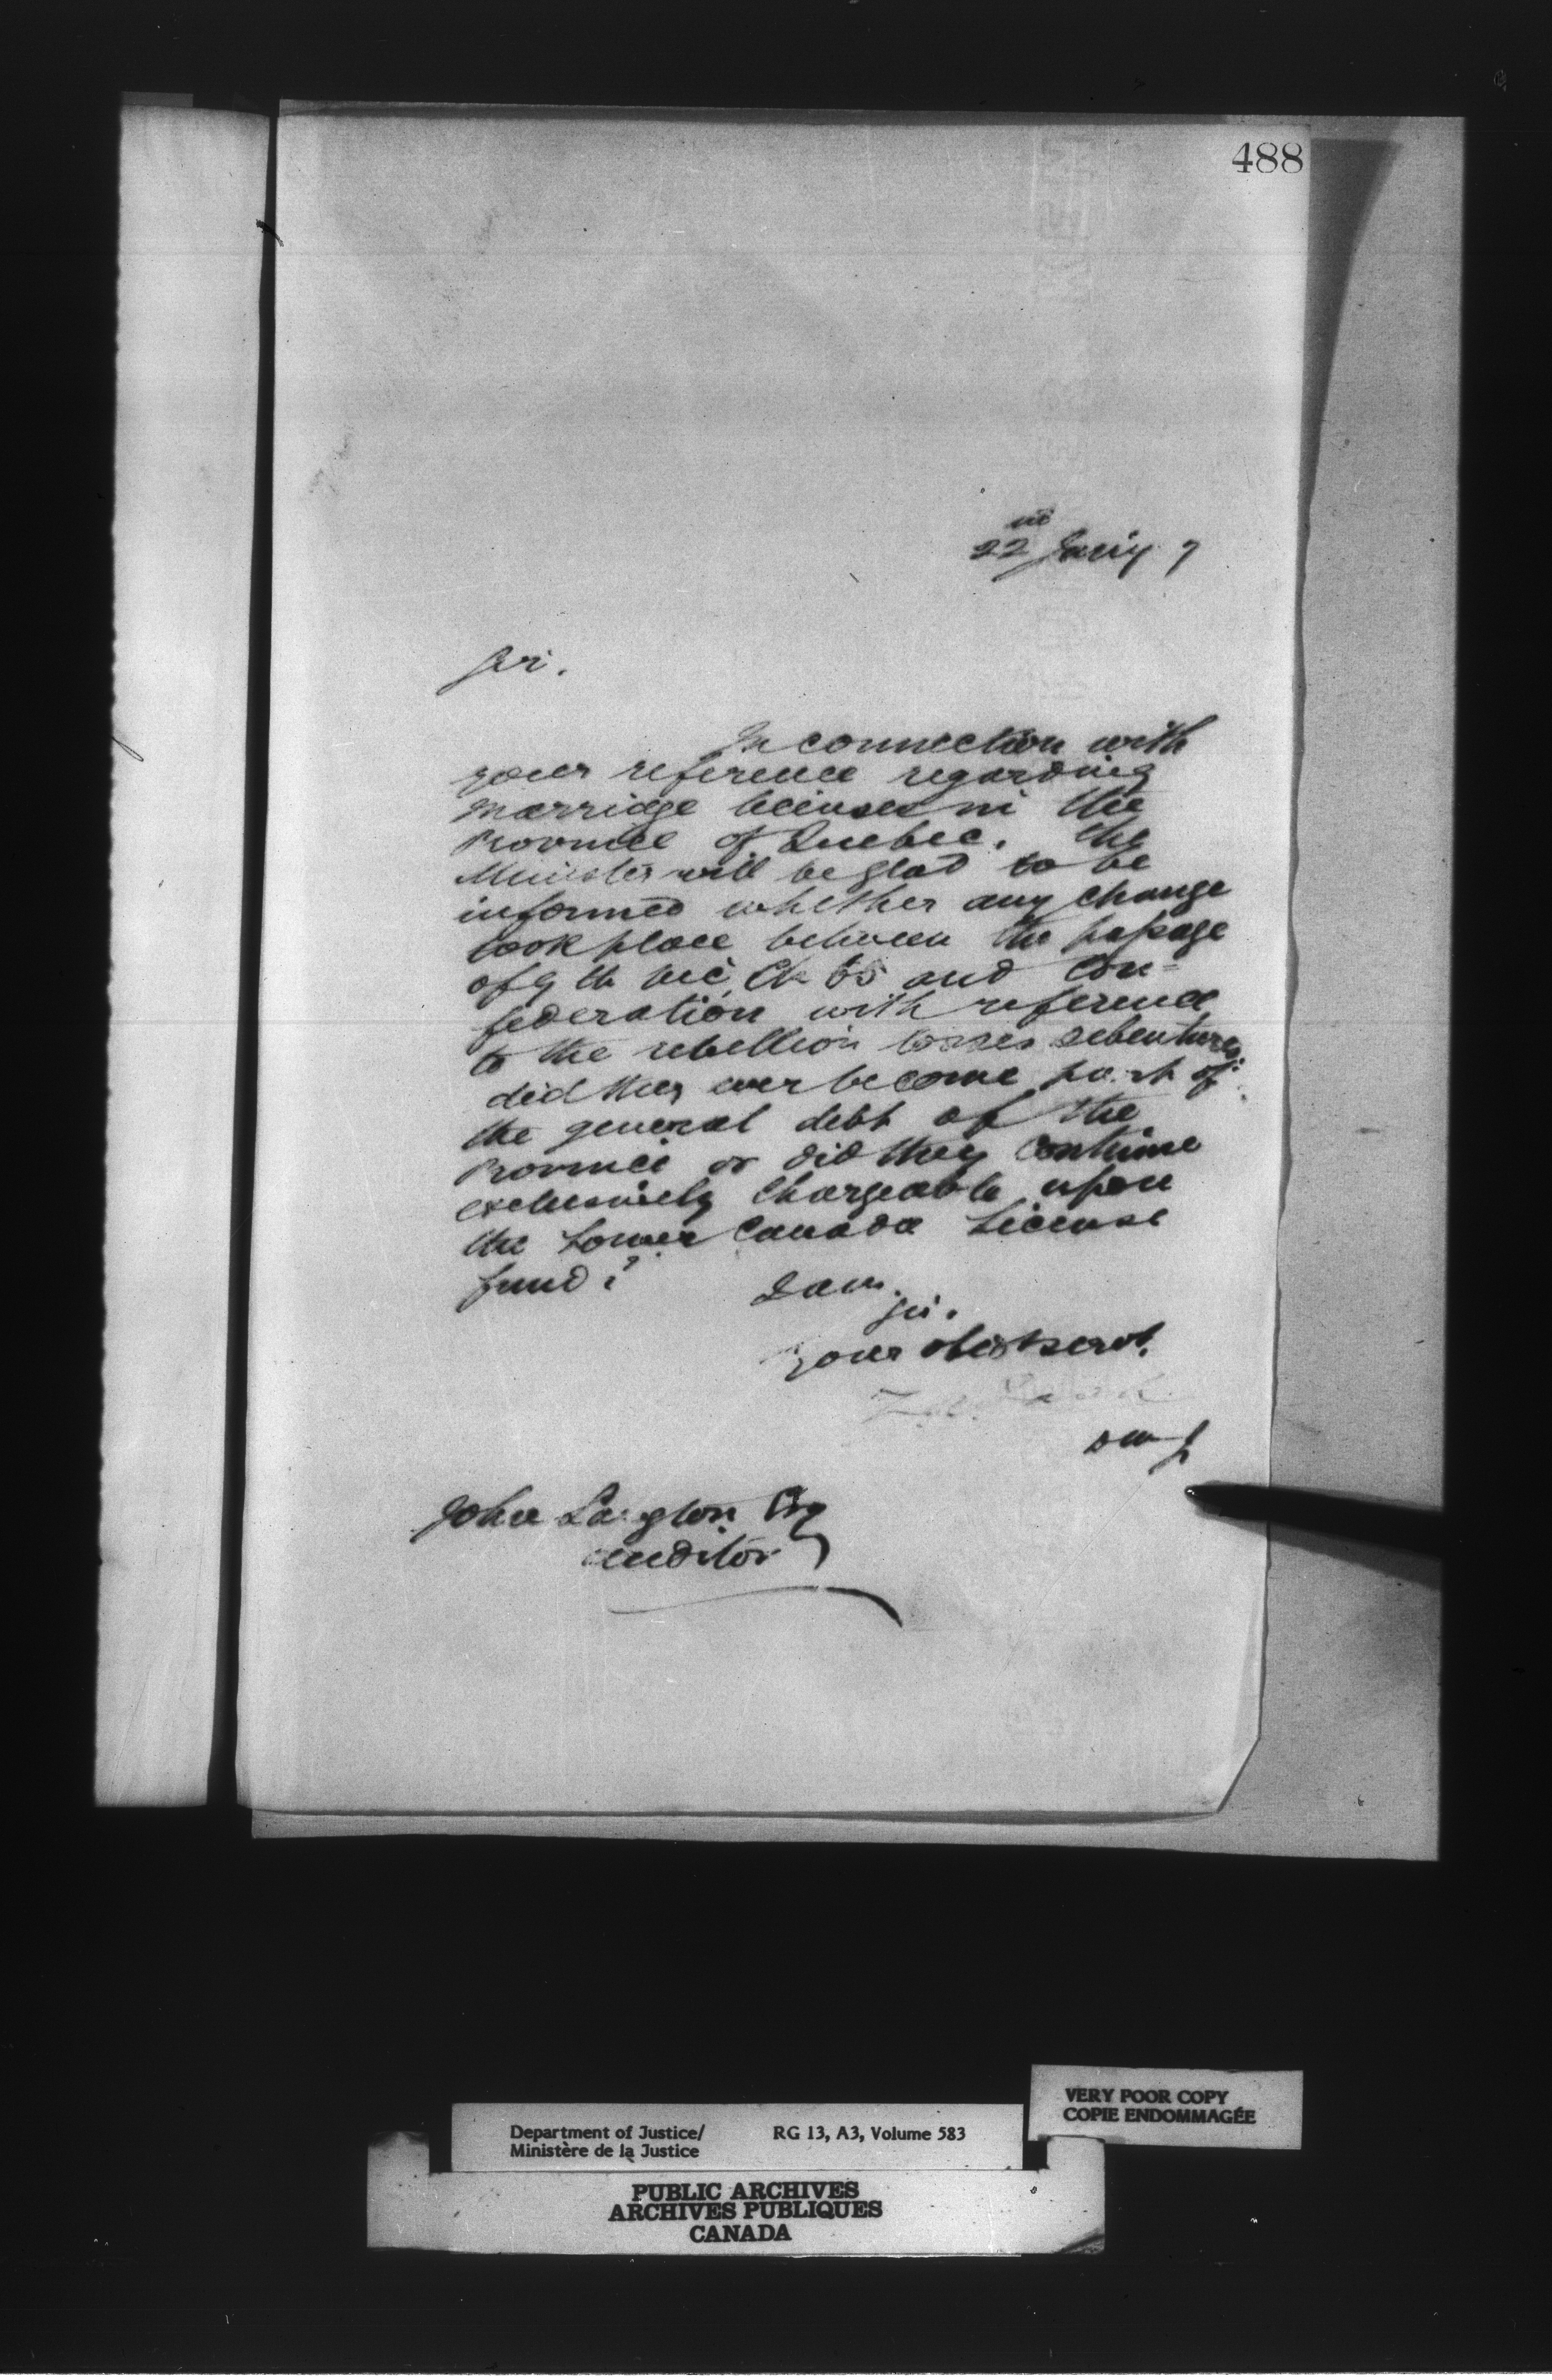 488
22nd Jany 7
Sir.
In connection with
your reference regarding
marriage licenses in the
Province of Quebec. The
Minister will be glad to be
informed whether any change
took place between the passage
of 9th Vic. Ch 65 and Con=
federation with reference
to the rebellion losses debentures:
did they ever become part of
the general debt of the
Province or did they continue
exclusively chargeable upon
the Lower Canada License
fund?
I am.
Sir.
your obedt servt.
John Langton Esq
Auditor
VERY POOR COPY
COPIE ENDOMMAGÉE
Department of Justice/ RG 13, A3, Volume 583
Ministère de la Justice
PUBLIC ARCHIVES
ARCHIVES PUBLIQUES
CANADA